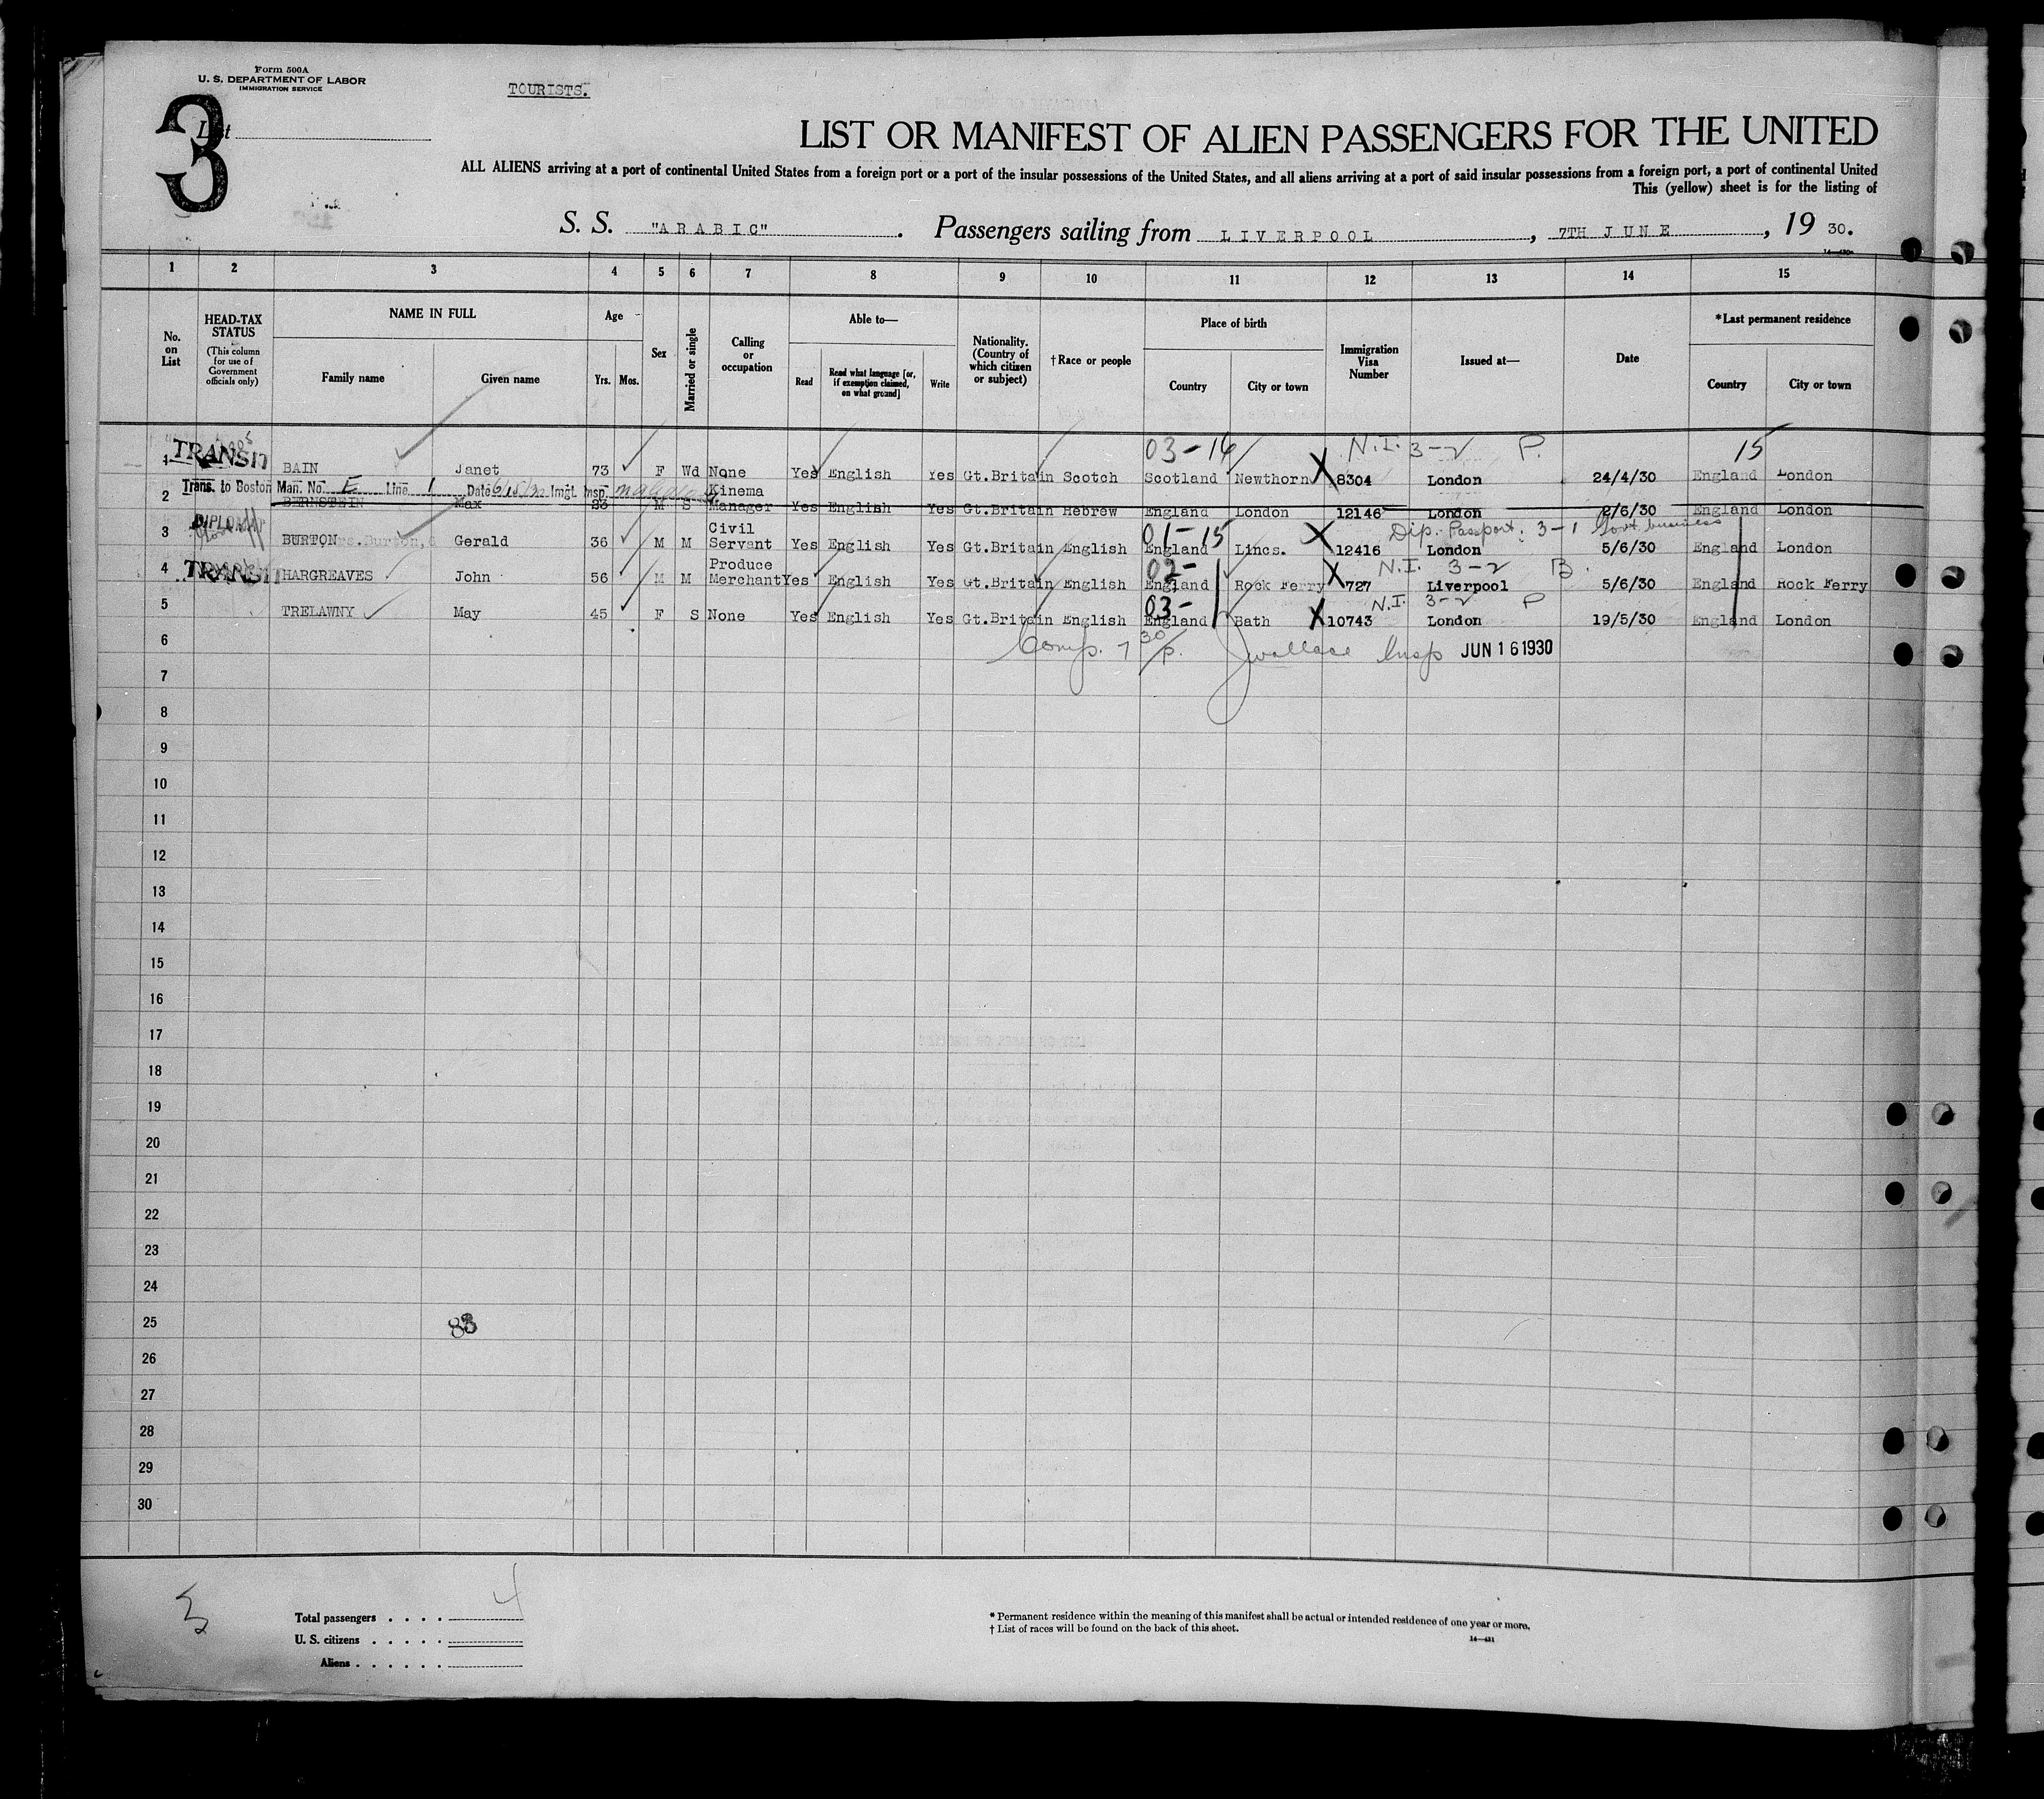 Form 500A
U. S. DEPARTMENT OF LABOR
IMMIGRATION SERVICE
TOURISTS.
3
List
LIST OR MANIFEST OF ALIEN PASSENGERS FOR THE UNITED
ALL ALIENS arriving at a port of continental United States from a foreign port or a port of the insular possessions of the United States, and all aliens arriving at a port of said insular possessions from a foreign port, a port of continental United
This (yellow) sheet is for the listing of
S. S. "ARABIC" . Passengers sailing from LIVERPOOL , 7TH JUNE , 19 30.
1 2 3 4 5 6 7 8 9 10 11 12 13 14 15
No. on List
HEAD-TAX STATUS
(This column for use of Government officials only)
NAME IN FULL
Family name Given name
Age
Yrs. Mos.
Sex
Married or single
Calling or occupation
Able to—
Read
Read what language [or, if exemption claimed, on what ground]
Write
Nationality. (Country of which citizen or subject)
†Race or people
Place of birth
Country City or town
Immigration Visa Number
Issued at—
Date
*Last permanent residence
Country City or town
03-16 N.I. 3-2 P. 15
1 TRANSIT BAIN Janet 73 F Wd None Yes English Yes Gt.Britain Scotch Scotland Newthorn X 8304 London 24/4/30 England London
Trans. to Boston Man. No. E Line 1 Date Imgt. Insp.
2 BERNSTEIN Max 23 M S Kinema Manager Yes English Yes Gt.Britain Hebrew England London 12146 London 2/6/30 England London
01-15 Dip. Passport. 3-1 Govt business
3 DIPLOMAT BURTON Gerald 36 M M Civil Servant Yes English Yes Gt.Britain English England Lincs. X 12416 London 5/6/30 England London
02- N.I. 3-2 B.
4 TRANSIT HARGREAVES John 56 M M Produce Merchant Yes English Yes Gt.Britain English England Rock Ferry X 727 Liverpool 5/6/30 England Rock Ferry
03- N.I. 3-2 P
5 TRELAWNY May 45 F S None Yes English Yes Gt.Britain English England Bath X 10743 London 19/5/30 England London
6 Comp. 7 30/p. J Wallace Insp JUN 16 1930
7
8
9
10
11
12
13
14
15
16
17
18
19
20
21
22
23
24
25 83
26
27
28
29
30
3
Total passengers . . . . 4
U. S. citizens . . . . .
Aliens . . . . . .
* Permanent residence within the meaning of this manifest shall be actual or intended residence of one year or more.
† List of races will be found on the back of this sheet.
14—431